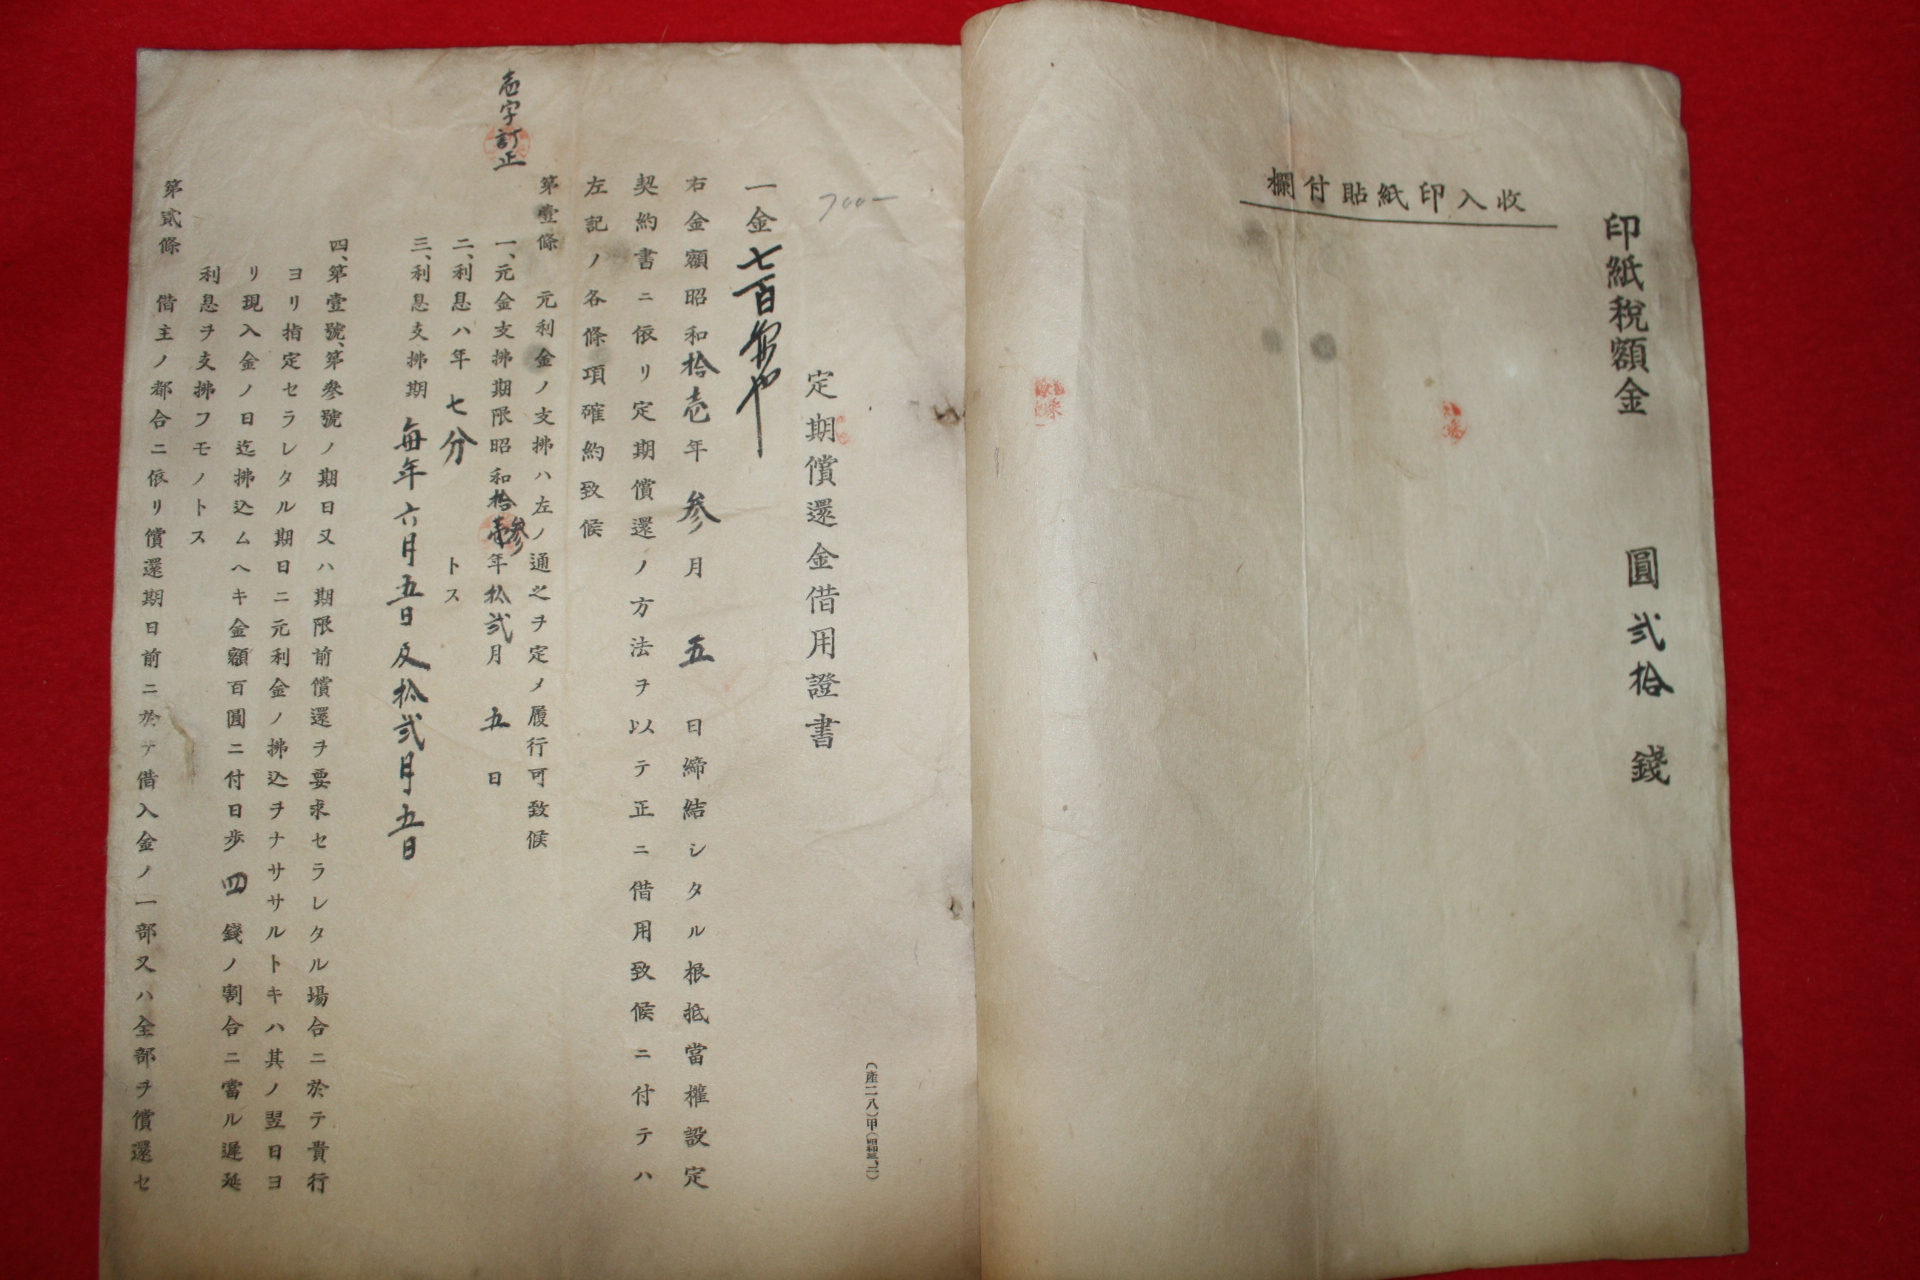 印紙稅額金 圓 弐拾 錢
收入印紙貼付欄
(產二八)甲
定期償還金借用證書
700-
一金七百圓也
右金額昭和拾壱年參月五日締結シタル根抵當權設定
契約書ニ依リ定期償還ノ方法ヲ以テ正ニ借用致候ニ付テハ
左記ノ各條項確約致候
壱字訂正
第壹條 元利金ノ支拂ハ左ノ通之ヲ定メ履行可致候
一、元金支拂期限昭和拾參年拾弐月五日
二、利息ハ年七分トス
三、利息支拂期 每年六月五日及拾弐月五日
四、第壹號、第參號ノ期日又ハ期限前償還ヲ要求セラレタル場合ニ於テ貴行
ヨリ指定セラレタル期日ニ元利金ノ拂込ヲナササルトキハ其ノ翌日ヨ
リ現入金ノ日迄拂込ムヘキ金額百圓ニ付日步四錢ノ割合ニ當ル遲延
利息ヲ支拂フモノトス
第貳條 借主ノ都合ニ依リ償還期日前ニ於テ借入金ノ一部又ハ全部ヲ償還セ